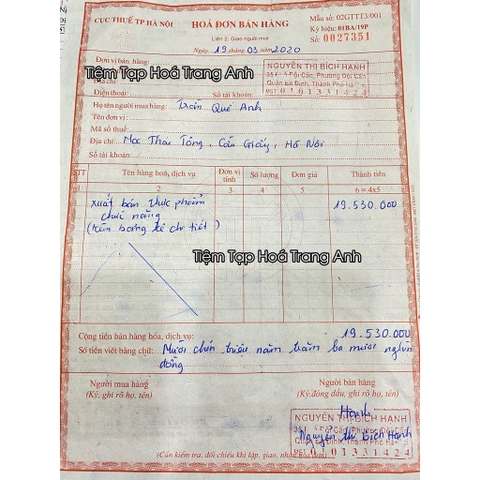 CỤC THUẾ TP HÀ NỘI
HOÁ ĐƠN BÁN HÀNG
Mẫu số: 02GTTT3/001
Liên 2: Giao người mua
Ký hiệu: 01BA/19P
Số: 0027351
Ngày 19 tháng 03 năm 2020
Đơn vị bán hàng:
NGUYỄN THỊ BÍCH HẠNH
Tiệm Tạp Hoá Trang Anh
Đội Cấn, Phường Đội Cấn
Địa chỉ:
Quận Ba Đình, Thành Phố Hà
Điện thoại: Số tài khoản:
MST 0101331424
Họ tên người mua hàng: Trần Quế Anh
Tên đơn vị:
Mã số thuế:
Địa chỉ: Mạc Thái Tông, Cầu Giấy, Hà Nội
Số tài khoản:
STT Tên hàng hoá, dịch vụ Đơn vị tính Số lượng Đơn giá Thành tiền
1 2 3 4 5 6 = 4x5
xuất bán thực phẩm 19.530.000
chức năng
(kèm bảng kê chi tiết)
Tiệm Tạp Hoá Trang Anh
Cộng tiền bán hàng hóa, dịch vụ: 19.530.000
Số tiền viết bằng chữ: Mười chín triệu năm trăm ba mươi nghìn
đồng
Người mua hàng Người bán hàng
(Ký, ghi rõ họ, tên) (Ký, đóng dấu, ghi rõ họ, tên)
Hạnh
NGUYỄN THỊ BÍCH HẠNH
Đội Cấn, Phường Đội Cấn
Nguyễn Thị Bích Hạnh
Quận Ba Đình, Thành Phố Hà
MST 0101331424
(Cần kiểm tra, đối chiếu khi lập, giao, nhận hóa đơn)